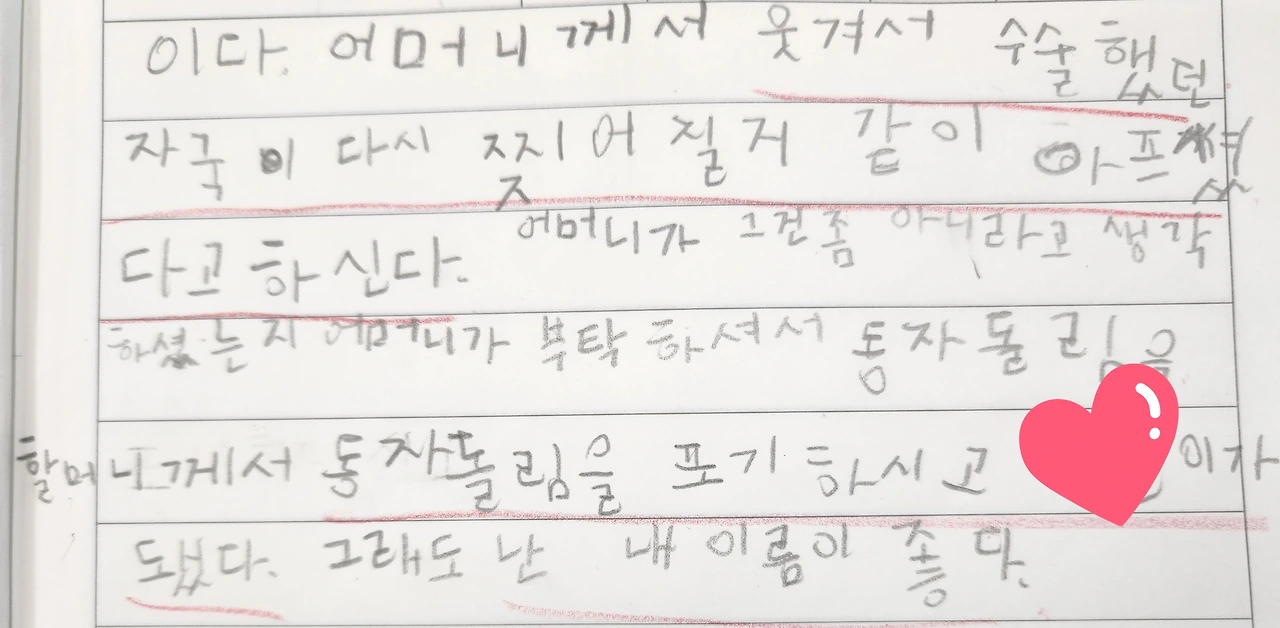 이다. 어머니께서 웃겨서 수술했던
자국이 다시 찢어질거 같이 아프셨
다고 하신다. 어머니가 그건좀 아니라고 생각
하셨는지 어머니가 부탁하셔서 동자돌림을
할머니께서 동자돌림을 포기하시고 이가
됬다. 그래도 난 내 이름이 좋다.